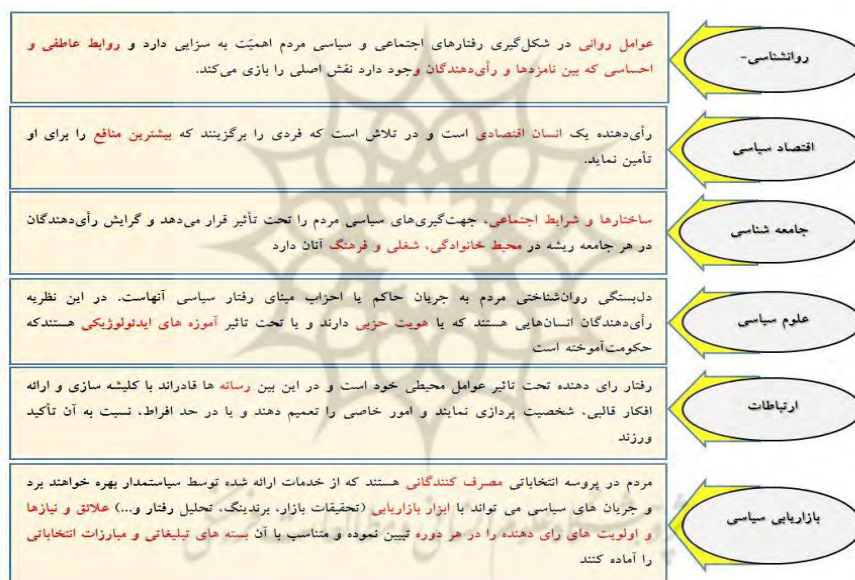 روانشناسی-
عوامل روانی در شکل‌گیری رفتارهای اجتماعی و سیاسی مردم اهمیّت به سزایی دارد و روابط عاطفی و
احساسی که بین نامزدها و رأی‌دهندگان وجود دارد نقش اصلی را بازی می‌کند.
اقتصاد سیاسی
رأی‌دهنده یک انسان اقتصادی است و در تلاش است که فردی را برگزینند که بیشترین منافع را برای او
تأمین نماید.
جامعه شناسی
ساختارها و شرایط اجتماعی، جهت‌گیری‌های سیاسی مردم را تحت تأثیر قرار می‌دهد و گرایش رأی‌دهندگان
در هر جامعه ریشه در محیط خانوادگی، شغلی و فرهنگ آنان دارد
علوم سیاسی
دل‌بستگی روان‌شناختی مردم به جریان حاکم یا احزاب مبنای رفتار سیاسی آنهاست. در این نظریه
رأی‌دهندگان انسان‌هایی هستند که یا هویت حزبی دارند و یا تحت تاثیر آموزه های ایدئولوژیکی هستندکه
حکومت‌آموخته است
ارتباطات
رفتار رای دهنده تحت تاثیر عوامل محیطی خود است و در این بین رسانه ها قادراند با کلیشه سازی و ارائه
افکار قالبی، شخصیت پردازی نمایند و امور خاصی را تعمیم دهند و یا در حد افراط، نسبت به آن تأکید
ورزند
بازاریابی سیاسی
مردم در پروسه انتخاباتی مصرف کنندگانی هستند که از خدمات ارائه شده توسط سیاستمدار بهره خواهند برد
و جریان های سیاسی می تواند با ابزار بازاریابی (تحقیقات بازار، برندینگ، تحلیل رفتار و...) علائق و نیازها
و اولویت های رای دهنده را در هر دوره تبیین نموده و متناسب با آن بسته های تبلیغاتی و مبارزات انتخاباتی
را آماده کنند